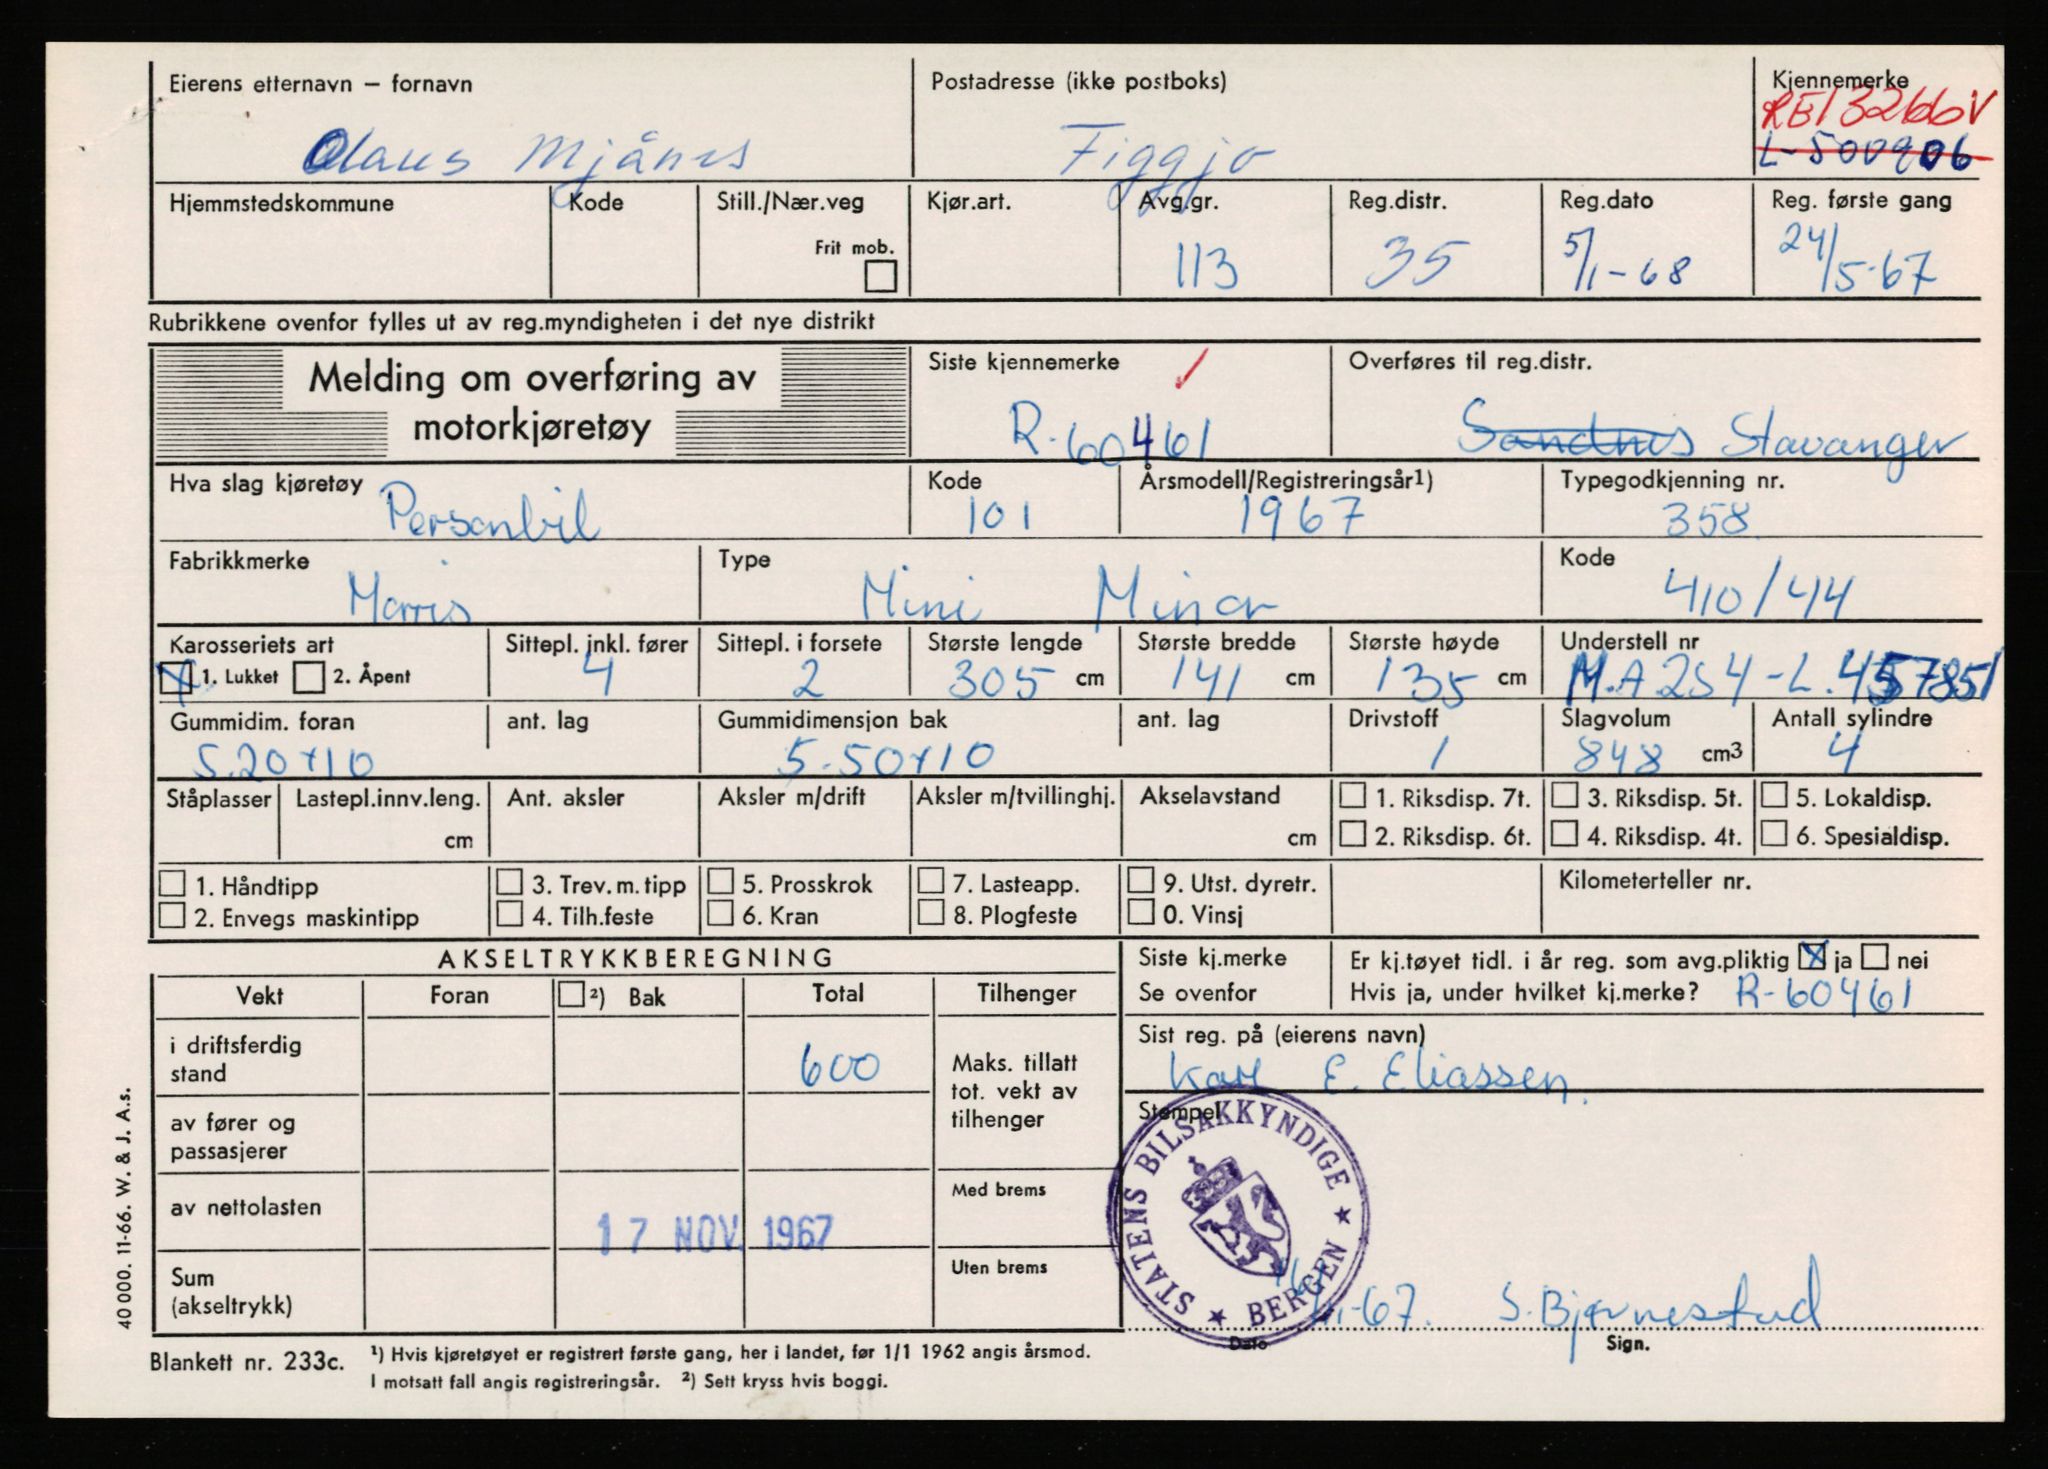 Eierens etternavn – fornavn
Olaus Mjånes
Postadresse (ikke postboks)
Figgjo
Kjennemerke
L-500906
Hjemmstedskommune
Kode
Still./Nær.veg
Frit mob.
Kjør.art.
Avg.gr.
113
Reg.distr.
35
Reg.dato
5/1-68
Reg. første gang
24/5-67
Rubrikkene ovenfor fylles ut av reg.myndigheten i det nye distrikt
Melding om overføring av
motorkjøretøy
Siste kjennemerke
R-60461
Overføres til reg.distr.
Sandnes Stavanger
Hva slag kjøretøy
Personbil
Kode
101
Årsmodell/Registreringsår1)
1967
Typegodkjenning nr.
358
Fabrikkmerke
Morris
Type
Mini Minor
Kode
410/44
Karosseriets art
1. Lukket 2. Åpent
Sittepl. inkl. fører
4
Sittepl. i forsete
2
Største lengde
305 cm
Største bredde
141 cm
Største høyde
135 cm
Understell nr
M.A2S4-L.457851
Gummidim. foran
5.20x10
ant. lag
Gummidimensjon bak
5-50x10
ant. lag
Drivstoff
1
Slagvolum
848 cm3
Antall sylindre
4
Ståplasser
Lastepl.innv.leng.
cm
Ant. aksler
Aksler m/drift
Aksler m/tvillinghj.
Akselavstand
cm
1. Riksdisp. 7t.
2. Riksdisp. 6t.
3. Riksdisp. 5t.
4. Riksdisp. 4t.
5. Lokaldisp.
6. Spesialdisp.
1. Håndtipp
2. Envegs maskintipp
3. Trev. m. tipp
4. Tilh.feste
5. Prosskrok
6. Kran
7. Lasteapp.
8. Plogfeste
9. Utst. dyretr.
0. Vinsj
Kilometerteller nr.
AKSELTRYKKBEREGNING
Vekt
Foran
2) Bak
Total
Tilhenger
i driftsferdig
stand
600
Maks. tillatt
tot. vekt av
tilhenger
av fører og
passasjerer
av nettolasten
Med brems
17 NOV. 1967
Sum
(akseltrykk)
Uten brems
Siste kj.merke
Se ovenfor
Er kj.tøyet tidl. i år reg. som avg.pliktig ja nei
Hvis ja, under hvilket kj.merke? R-60461
Sist reg. på (eierens navn)
E. Eliassen
Stempel
STATENS BILSAKKYNDIGE
BERGEN
-67. S. Bjørnestad
Dato
Sign.
40 000. 11-66. W. & J. A.s.
Blankett nr. 233c.
1) Hvis kjøretøyet er registrert første gang, her i landet, før 1/1 1962 angis årsmod.
I motsatt fall angis registreringsår. 2) Sett kryss hvis boggi.